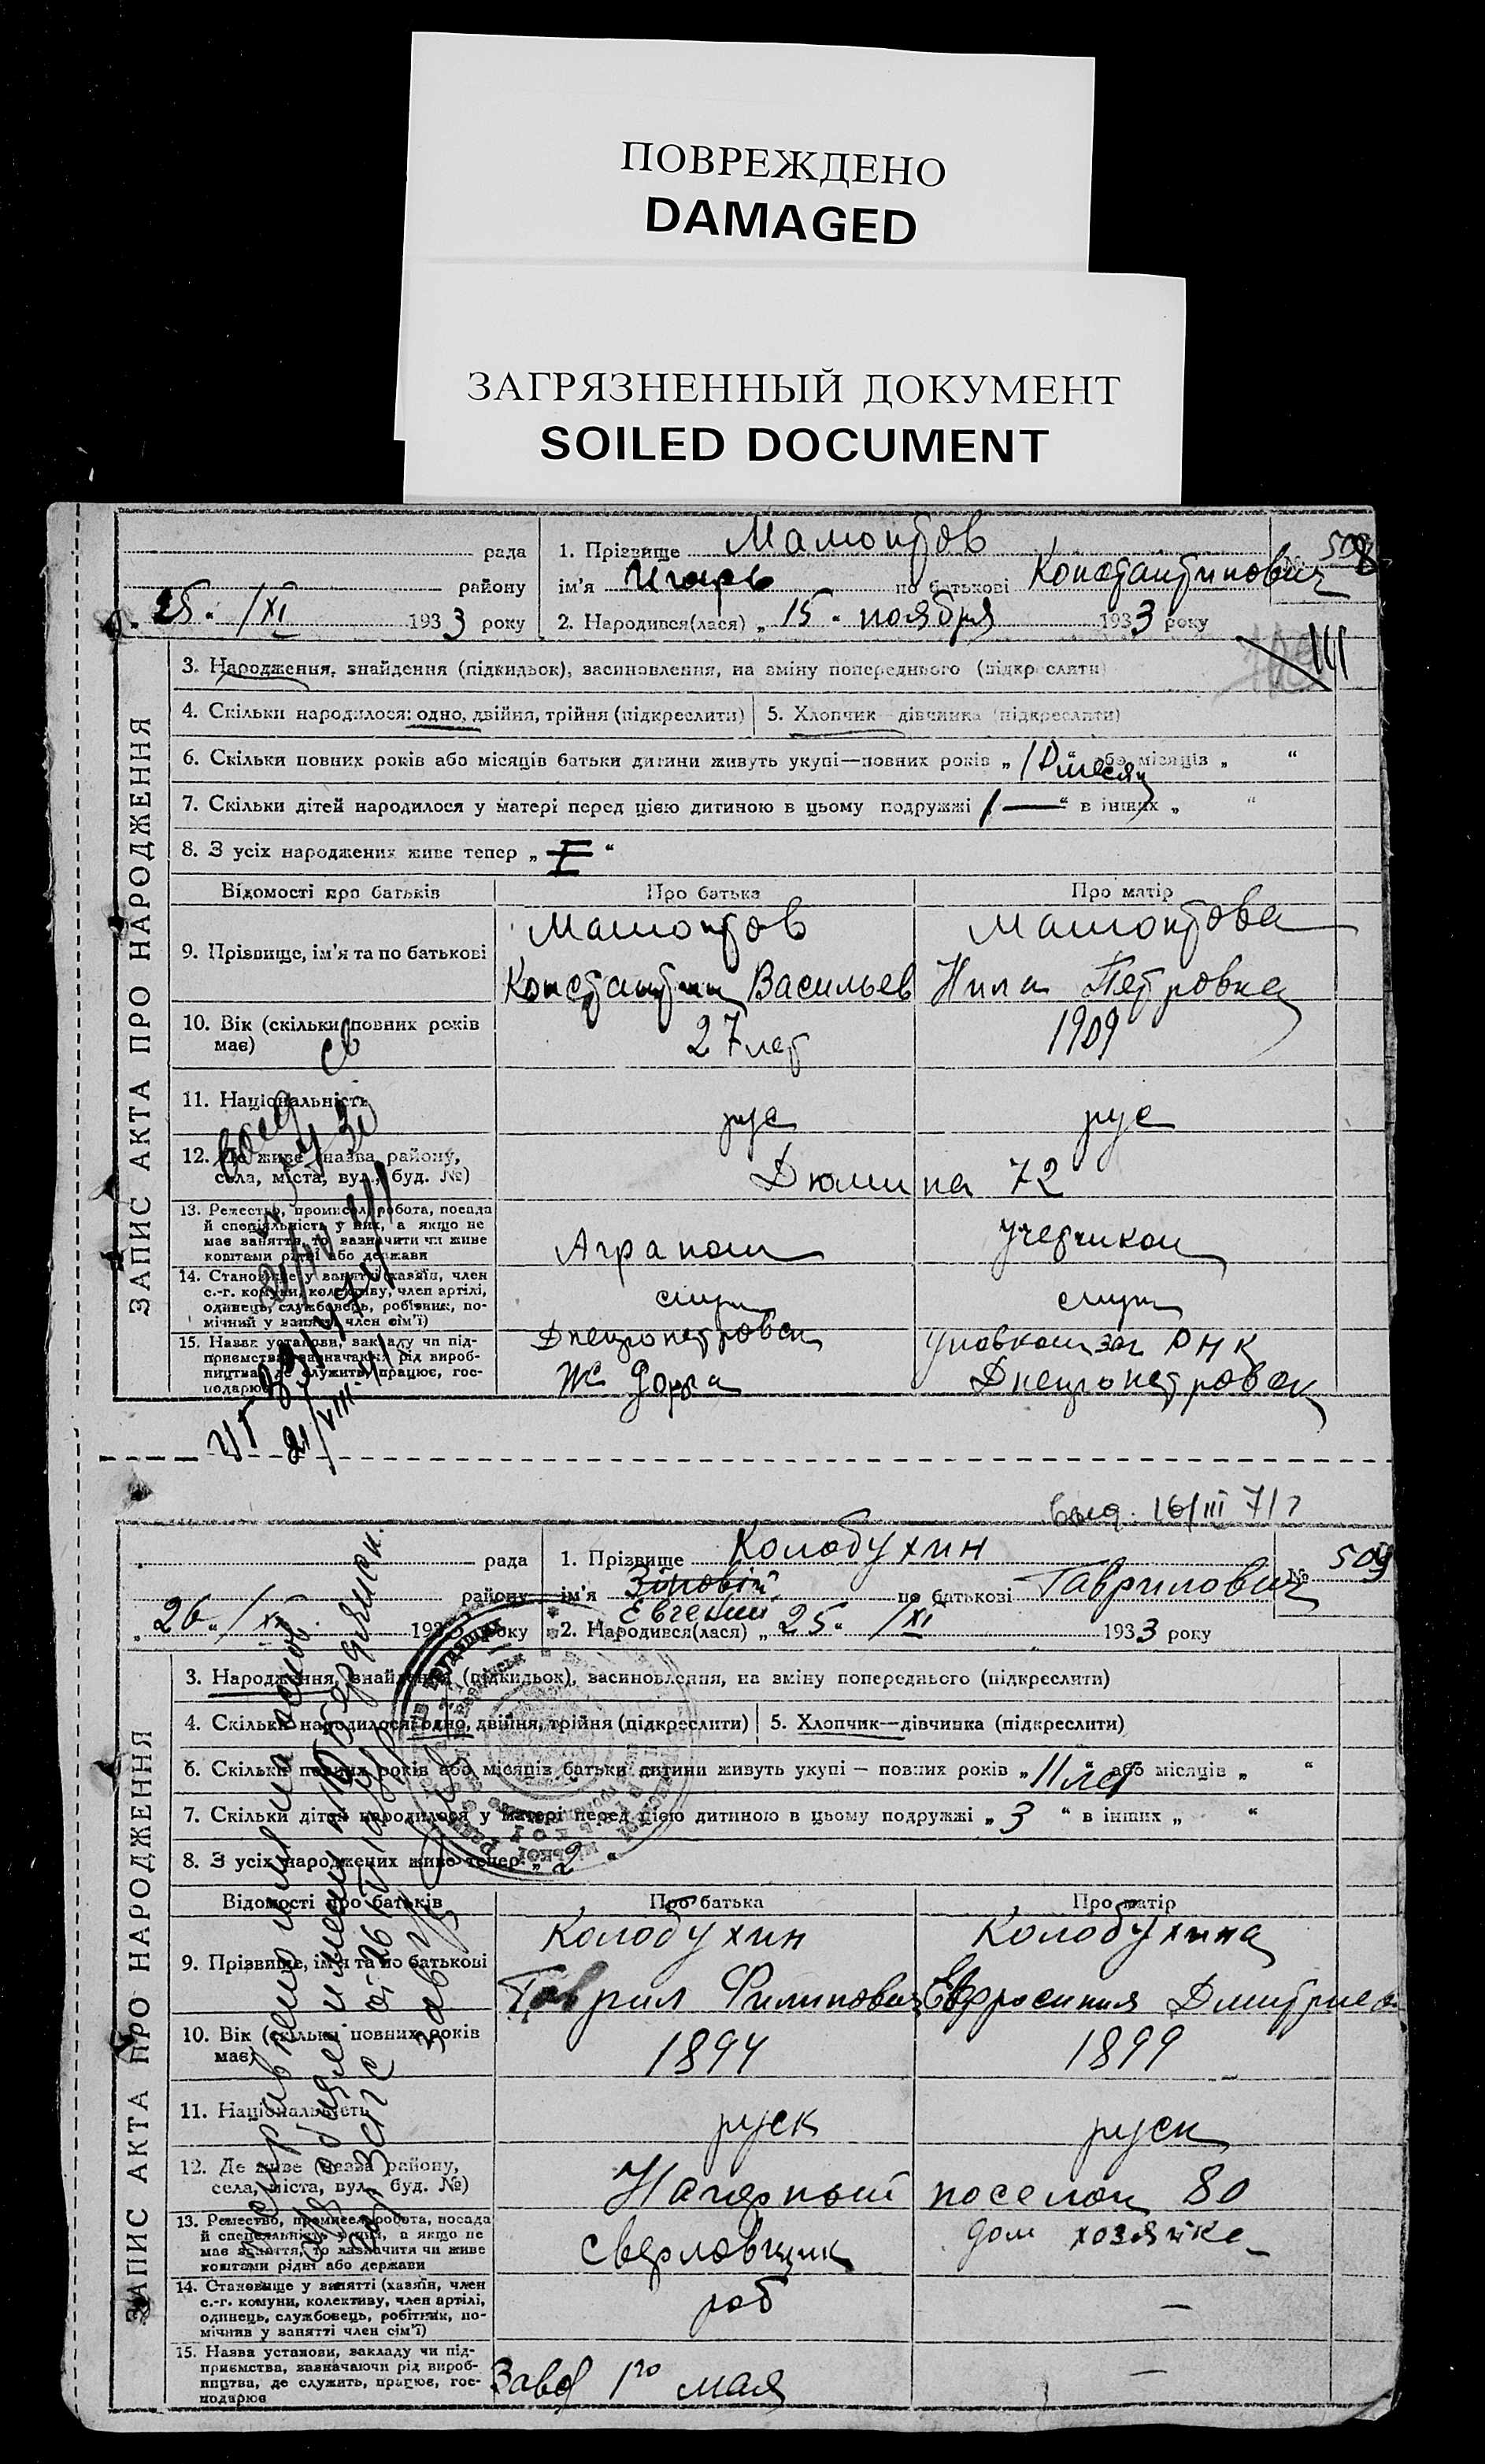 ПОВРЕЖДЕНО
DAMAGED
ЗАГРЯЗНЕННЫЙ ДОКУМЕНТ
SOILED DOCUMENT
рада
району
25. /XI 1933 року
1. Прізвище Мамонтов
№ 508
ім'я Игорь по батькові Константинович
2. Народився(лася) „ 15. ноября 1933 року
III
ЗАПИС АКТА ПРО НАРОДЖЕННЯ
3. Народження, знайдення (підкидьок), засиновлення, на зміну попереднього (підкреслити)
4. Скільки народилося: одно, двійня, трійня (підкреслити)
5. Хлопчик—дівчинка (підкреслити)
6. Скільки повних років або місяців батьки дитини живуть укупі—повних років „ або місяців „ “
7. Скільки дітей народилося у матері перед цією дитиною в цьому подружжі „ — “ в інших „ “
8. З усіх народжених живе тепер „ I “
Відомості про батьків
Про батька
Про матір
9. Прізвище, ім'я та по батькові
Мамонтов
Константин Васильев
Мамонтова
Нина Петровна
10. Вік (скільки повних років має)
27 лет
1909
11. Національність
рус
рус
12. Де живе (назва району, села, міста, вул., буд. №)
Дюмина 72
13. Ремество, промисел, робота, посада й спеціяльність у них, а якщо не має заняття, то зазначити чи живе коштами рідні або держави
Аграном
14. Становище у занятті (хазяїн, член с.-г. комуни, колективу, член артілі, одинець, службовець, робітник, помічний у занятті член сім'ї)
служ
служ
15. Назва установи, закладу чи підприємства, зазначаючи рід виробництва, де служить, працює, господарює
Днепропетровск
Днепропетровск
21/VIII
выд. 16/III 71
рада
району
„ 26. /XI 1933 року
1. Прізвище Колобухин
№ 509
ім'я Зіновій по батькові Гаврилович
Евгений
2. Народився(лася) „ 25. /XI 1933 року
ЗАПИС АКТА ПРО НАРОДЖЕННЯ
3. Народження, знайдення (підкидьок), засиновлення, на зміну попереднього (підкреслити)
4. Скільки народилося: одно, двійня, трійня (підкреслити)
5. Хлопчик—дівчинка (підкреслити)
6. Скільки повних років або місяців батьки дитини живуть укупі — повних років „ 11 лет або місяців „ “
7. Скільки дітей народилося у матері перед цією дитиною в цьому подружжі „ 3 “ в інших „ “
8. З усіх народжених живе тепер „ 2 “
Відомості про батьків
Про батька
Про матір
9. Прізвище, ім'я та по батькові
Колобухин
Гаврил Филипович
Колобухина
Ефросиния Дмитриев
10. Вік (скільки повних років має)
1894
1899
11. Національність
руск
руск
12. Де живе (назва району, села, міста, вул., буд. №)
Нагорный поселок 80
13. Ремество, промисел, робота, посада й спеціяльність у них, а якщо не має заняття, то зазначити чи живе коштами рідні або держави
сверловщик
дом хозяйка
14. Становище у занятті (хазяїн, член с.-г. комуни, колективу, член артілі, одинець, службовець, робітник, помічний у занятті член сім'ї)
роб
—
15. Назва установи, закладу чи підприємства, зазначаючи рід виробництва, де служить, працює, господарює
Завод 1го мая
—